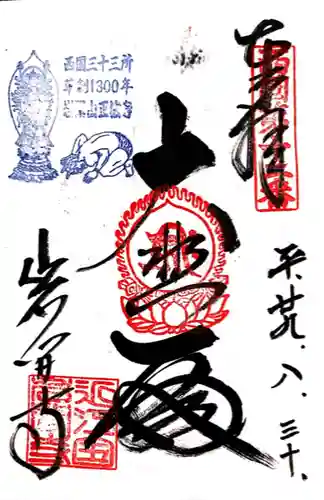 奉拝
西国第十二番
西国三十三所
草創1300年
正法寺
大悲
平廿九、八、三十、
岩間寺
近江国